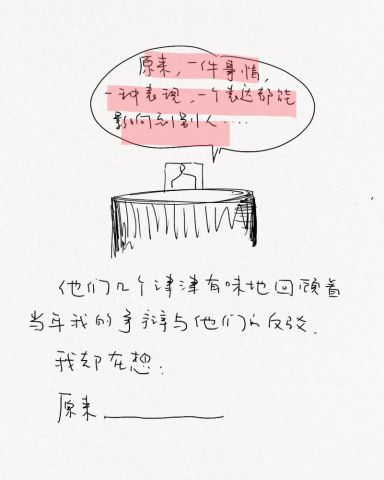 原来，一件事情，
一种表现，一个表达都能
影响到别人....
他们几个津津有味地回顾着
当年我的争辩与他们的反驳.
我却在想:
原来